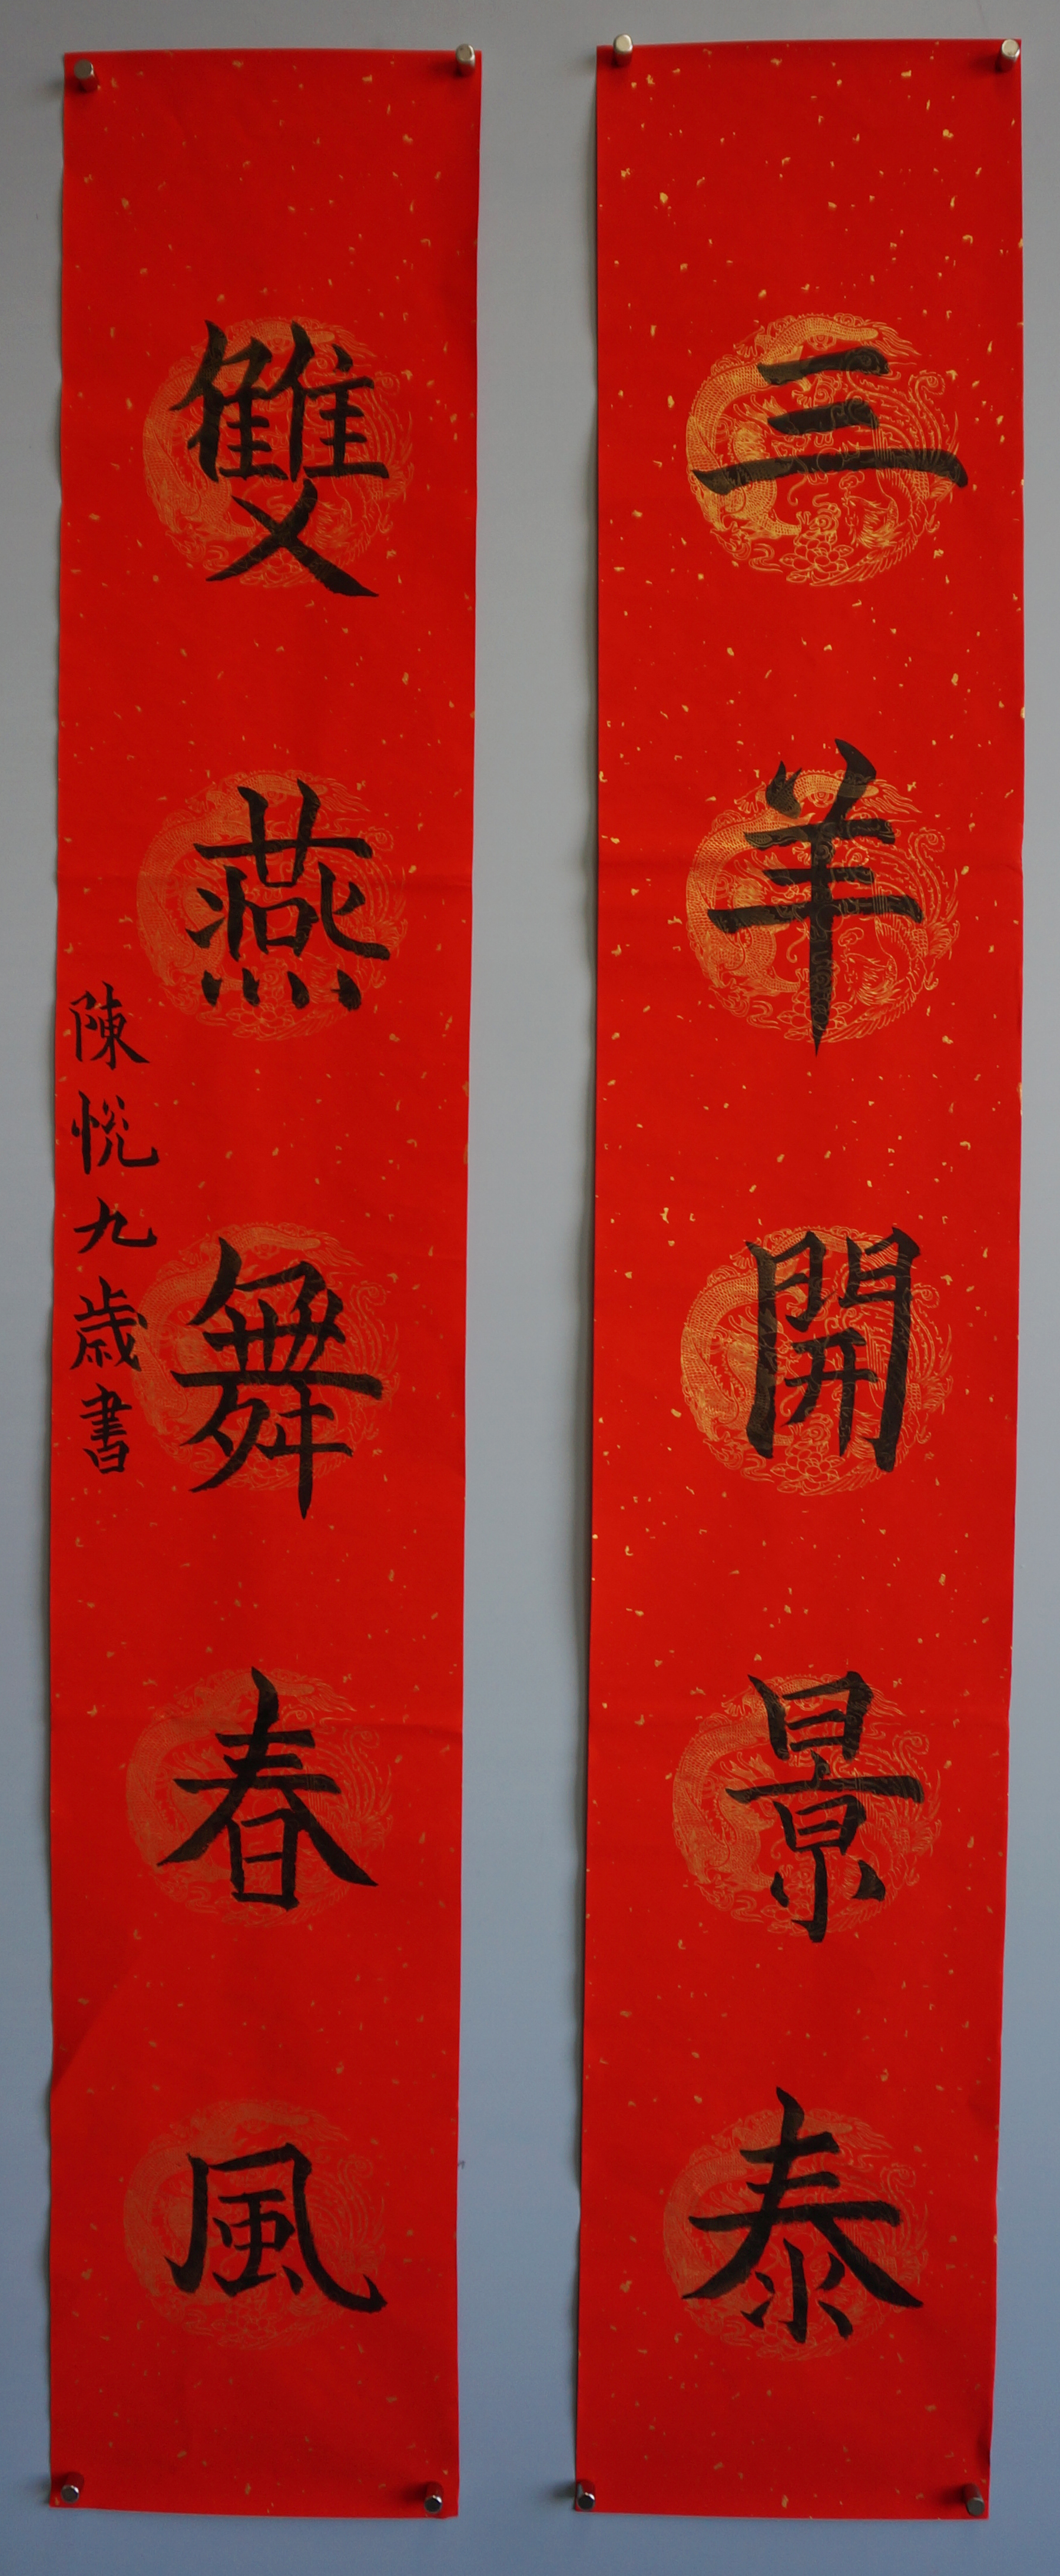 三羊開景泰
雙燕舞春風
陳悦九歲書